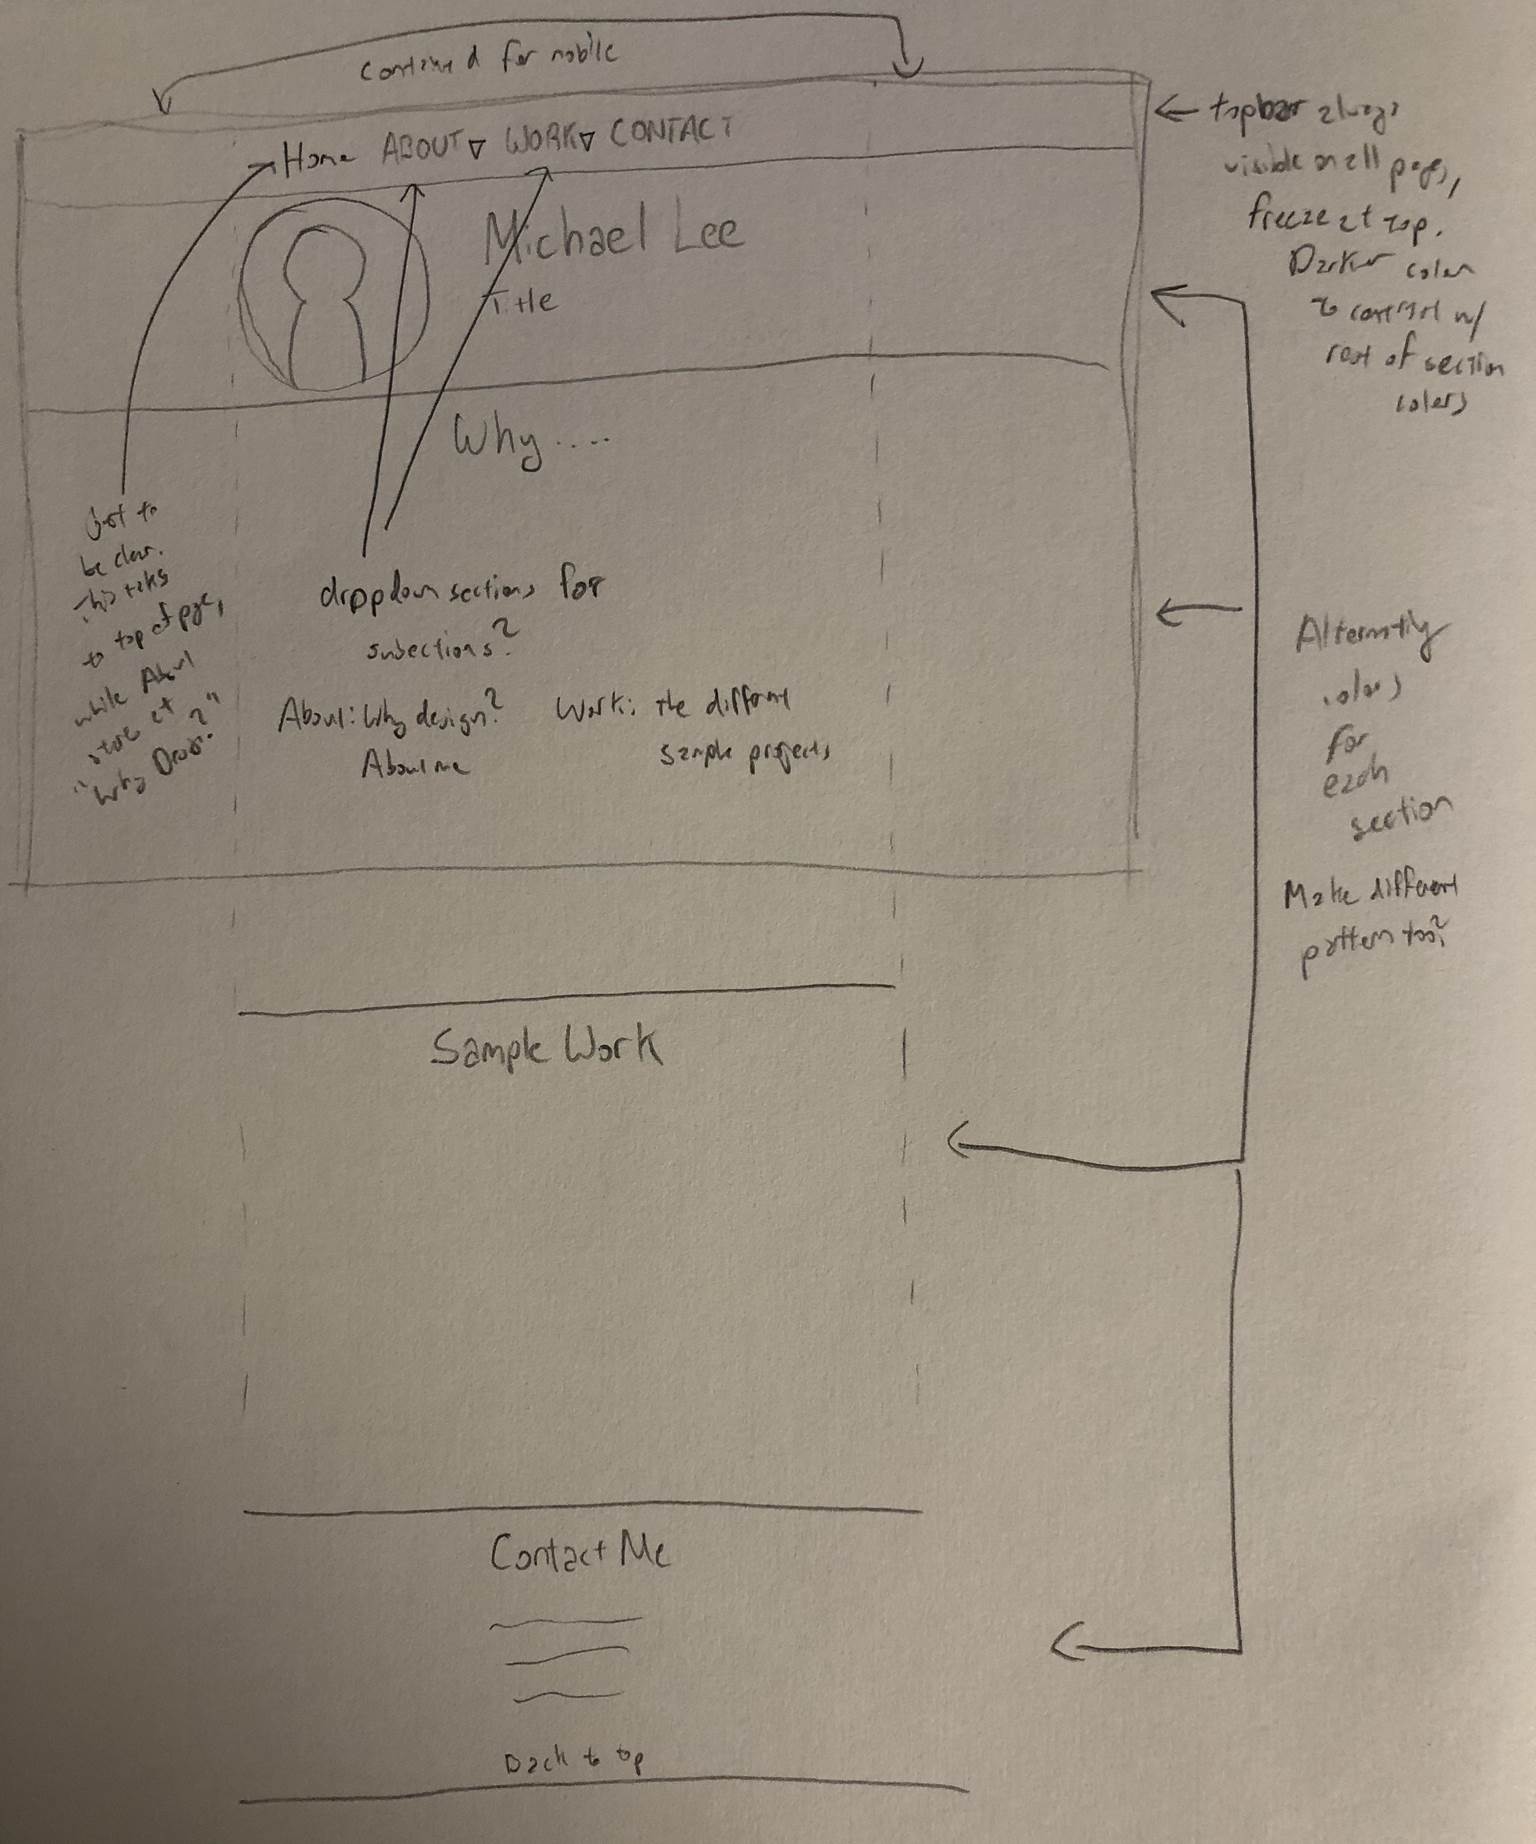 Contained for mobile
Home ABOUT▽ WORK▽ CONTACT
Michael Lee
Title
Why ....
topbar always
visible on all pages,
freeze at top.
Darker color
to contrast w/
rest of section
colors
Just to
be clear.
This takes
to top of page,
while About
at
"Why Design?"
dropdown sections for
subsections?
About: Why design?
About me
Work: the different
sample projects
Alternating
colors
for
each
section
Make different
pattern too?
Sample Work
Contact Me
Back to top